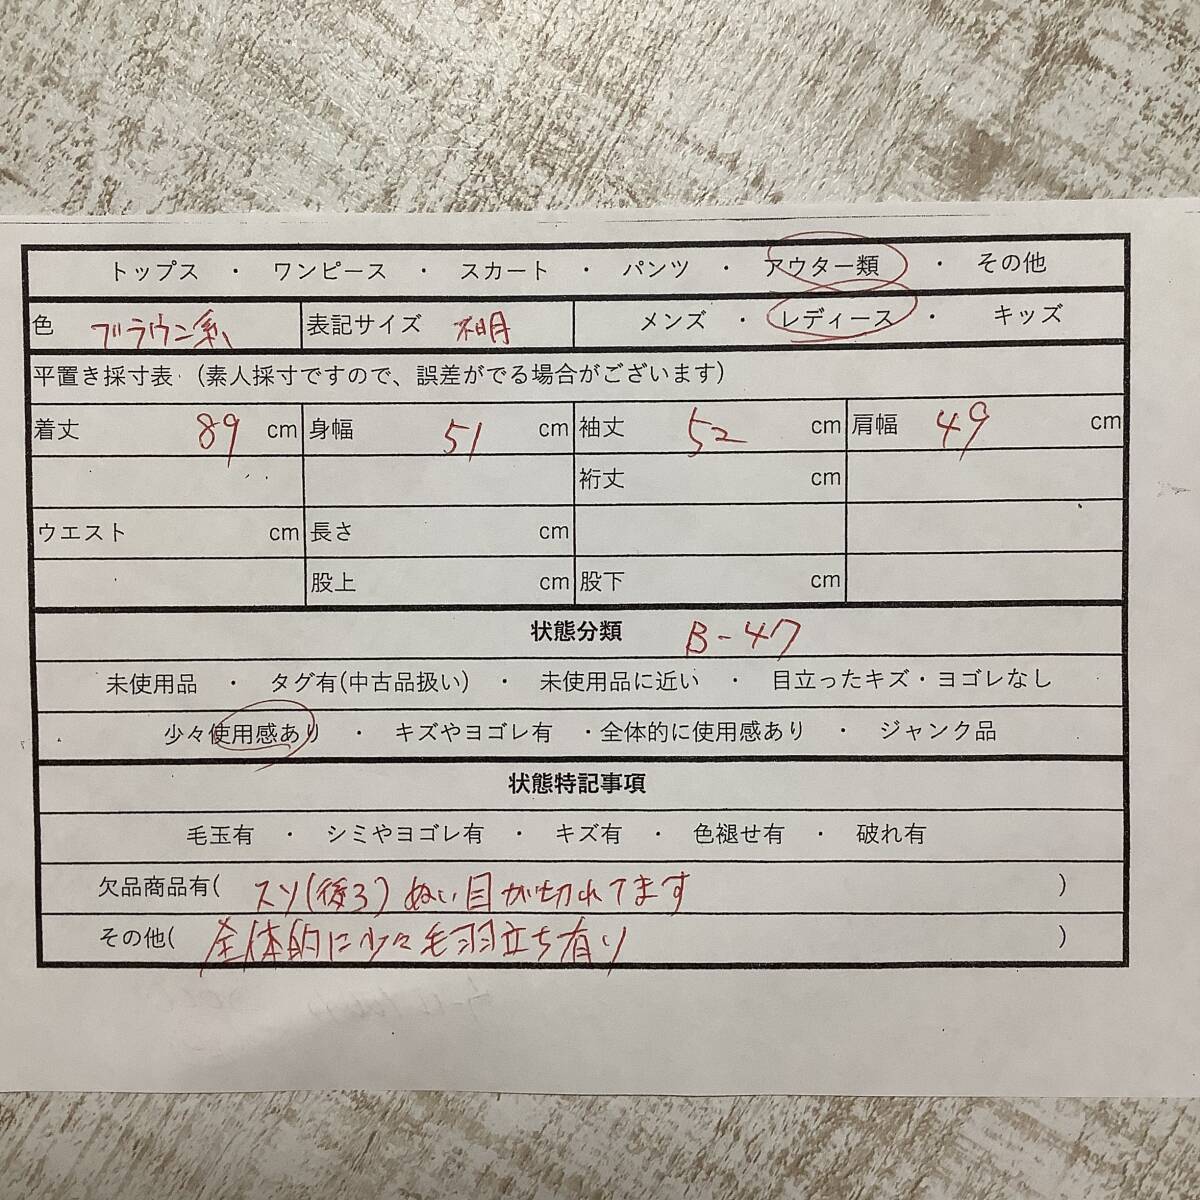 トップス ・ ワンピース ・ スカート ・ パンツ ・ アウター類 ・ その他
色 ブラウン系 表記サイズ 不明 メンズ ・ レディース ・ キッズ
平置き採寸表 (素人採寸ですので、誤差がでる場合がございます)
着丈 89 cm 身幅 51 cm 袖丈 52 cm 肩幅 49 cm
裄丈 cm
ウエスト cm 長さ cm
股上 cm 股下 cm
状態分類 B-47
未使用品 ・ タグ有(中古品扱い) ・ 未使用品に近い ・ 目立ったキズ・ヨゴレなし
少々使用感あり ・ キズやヨゴレ有 ・全体的に使用感あり ・ ジャンク品
状態特記事項
毛玉有 ・ シミやヨゴレ有 ・ キズ有 ・ 色褪せ有 ・ 破れ有
欠品商品有( スソ(後ろ) ぬい目が切れてます )
その他( 全体的に少々毛羽立ち有り )